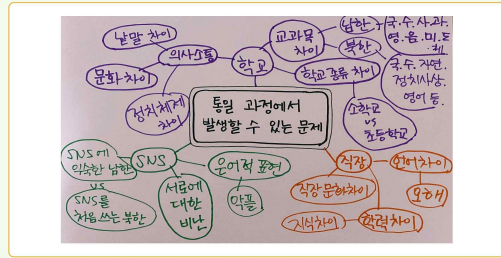 통일 과정에서
발생할 수 있는 문제
학교
의사소통
낱말 차이
문화차이
정치체제
차이
교과목
차이
남한
국.수.사.과.
영.음.미.도
.체
북한
국.수.자연.
정치사상.
영어 등.
학교 종류 차이
소학교
vs
초등학교
SNS
SNS에
익숙한 남한
VS
SNS를
처음 쓰는 북한
서로에
대한
비난
은어적 표현
악플
직장
직장 문화차이
언어차이
오해
학력차이
지식차이